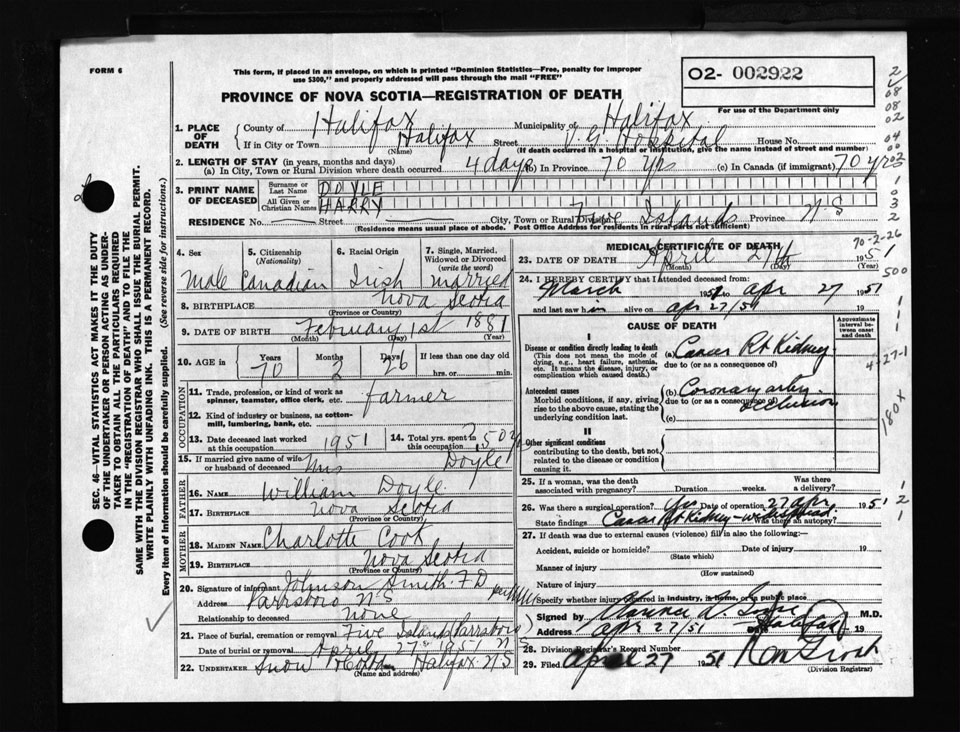 FORM 6
This form, if placed in an envelope, on which is printed "Dominion Statistics—Free, penalty for improper
use $300," and properly addressed will pass through the mail "FREE"
PROVINCE OF NOVA SCOTIA—REGISTRATION OF DEATH
02- 002922
For use of the Department only
1. PLACE OF DEATH { County of Halifax Municipality of Halifax
If in City or Town Halifax (Name) Street V.G. Hospital House No.
(If death occurred in a hospital or institution, give the name instead of street and number)
2. LENGTH OF STAY (in years, months and days)
(a) In City, Town or Rural Division where death occurred 4 days (b) In Province 70 yrs (c) In Canada (if immigrant) 70 yrs
3. PRINT NAME OF DECEASED { Surname or Last Name DOYLE
All Given or Christian Names HARRY
RESIDENCE No. Street City, Town or Rural Division Five Islands Province N.S
(Residence means usual place of abode. Post Office Address for residents in rural parts not sufficient)
4. Sex Male
5. Citizenship (Nationality) Canadian
6. Racial Origin Irish
7. Single, Married, Widowed or Divorced (write the word) married
8. BIRTHPLACE Nova Scotia
(Province or Country)
9. DATE OF BIRTH February 1st 1881
(Month) (Day) (Year)
10. AGE in { Years 70 Months 2 Days 26 If less than one day old
hrs. or min.
OCCUPATION
11. Trade, profession, or kind of work as spinner, teamster, office clerk, etc. farmer
12. Kind of industry or business, as cotton-mill, lumbering, bank, etc.
13. Date deceased last worked at this occupation 1951
14. Total yrs. spent in this occupation 50 y
15. If married give name of wife or husband of deceased Mrs Doyle
FATHER
16. NAME William Doyle
17. BIRTHPLACE Nova Scotia
(Province or Country)
MOTHER
18. MAIDEN NAME Charlotte Cook
19. BIRTHPLACE Nova Scotia
(Province or Country)
20. Signature of informant Johnson Smith F.D
Address Parrsboro N S
Relationship to deceased none
21. Place of burial, cremation or removal Five Islands Parrsboro
Date of burial or removal April 27 1951 N S
22. UNDERTAKER Snow Halifax N S
(Name and address)
MEDICAL CERTIFICATE OF DEATH
23. DATE OF DEATH April 27th 1951
(Month) (Day) (Year)
24. I HEREBY CERTIFY that I attended deceased from:
March 1951 to apr 27 1951
and last saw him alive on apr 27/51
CAUSE OF DEATH
Approximate interval between onset and death
I
Disease or condition directly leading to death
(This does not mean the mode of dying, e.g., heart failure, asthenia, etc. It means the disease, injury, or complication which caused death.)
(a) Cancer Rt Kidney
due to (or as a consequence of)
Antecedent causes
Morbid conditions, if any, giving rise to the above cause, stating the underlying condition last.
(b) Coronary artery occlusion
due to (or as a consequence of)
(c)
II
Other significant conditions
contributing to the death, but not related to the disease or condition causing it.
25. If a woman, was the death associated with pregnancy? Duration weeks. Was there a delivery?
26. Was there a surgical operation? Yes Date of operation 27 apr 1951
State findings Cancer Rt Kidney Was there an autopsy?
27. If death was due to external causes (violence) fill in also the following:
Accident, suicide or homicide? Date of injury 19
(State which)
Manner of injury
(How sustained)
Nature of injury
Specify whether injury occurred in industry, in home, or in public place
Signed by Clarence M.D.
Address Halifax Date apr 27/51 19
28. Division Registrar's Record Number
29. Filed April 27 1951
(Division Registrar)
SEC. 46—VITAL STATISTICS ACT MAKES IT THE DUTY
OF THE UNDERTAKER OR PERSON ACTING AS UNDER-
TAKER TO OBTAIN ALL THE PARTICULARS REQUIRED
IN THE "REGISTRATION OF DEATH" AND TO FILE THE
SAME WITH THE DIVISION REGISTRAR WHO SHALL ISSUE THE BURIAL PERMIT.
WRITE PLAINLY WITH UNFADING INK. THIS IS A PERMANENT RECORD.
Every item of Information should be carefully supplied. (See reverse side for instructions.)
2
08
08
02
04
00
02
1
0
3
2
70-2-26
500
1
1
1
4-27-1
180X
1
2
1